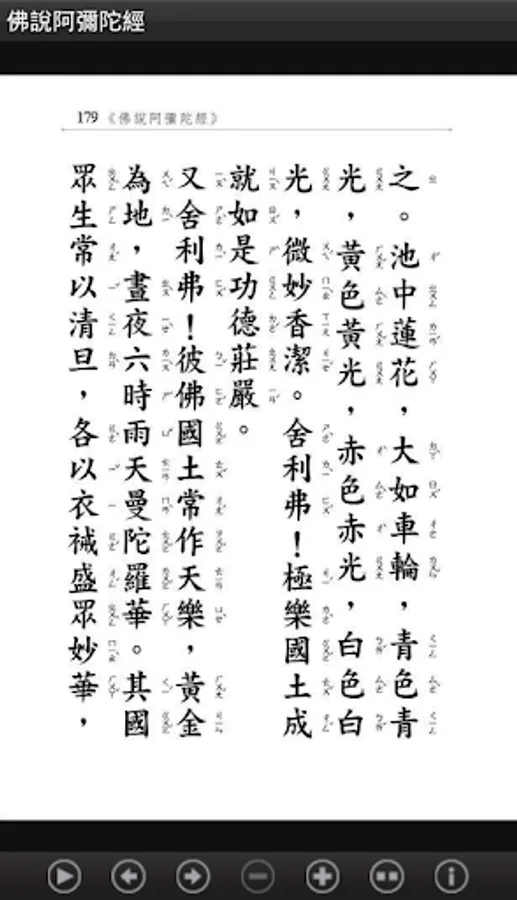 佛說阿彌陀經
179《佛說阿彌陀經》
之。池中蓮花，大如車輪，青色青
光，黃色黃光，赤色赤光，白色白
光，微妙香潔。舍利弗！極樂國土成
就如是功德莊嚴。
又舍利弗！彼佛國土常作天樂，黃金
為地，晝夜六時雨天曼陀羅華。其國
眾生常以清旦，各以衣祴盛眾妙華，